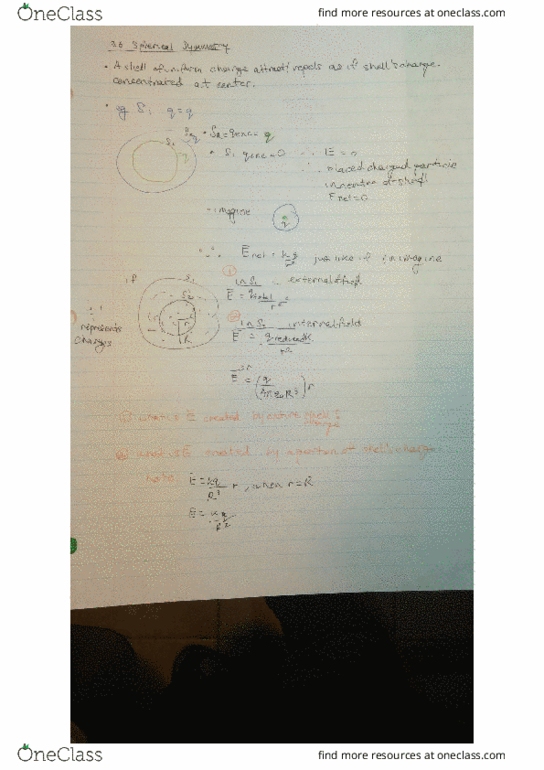 OneClass
find more resources at oneclass.com
3.6 Spherical Symmetry
• A shell of uniform charge attract/repels as if shell's charge
concentrated at center.
• eg S1 q=q
• S2 = qenc = q
• S1 qenc=0 ∴ E = 0
∴ placed charged particle
in center of shell
Fnet=0
- imagine
q
Enet = kq/r² just like if in imagine
if
S1
S2
r
R
∵
represents
charges
①
in S1 external field
E = qtotal/r²
②
in S2 internal field
E =
r²
E = (q/4πε0R³) r
① what is E created by entire shell's
charge
② what is E created by a portion of shell's charge
note E = kq/R³ r, when r=R
E = kq/r²
OneClass
find more resources at oneclass.com